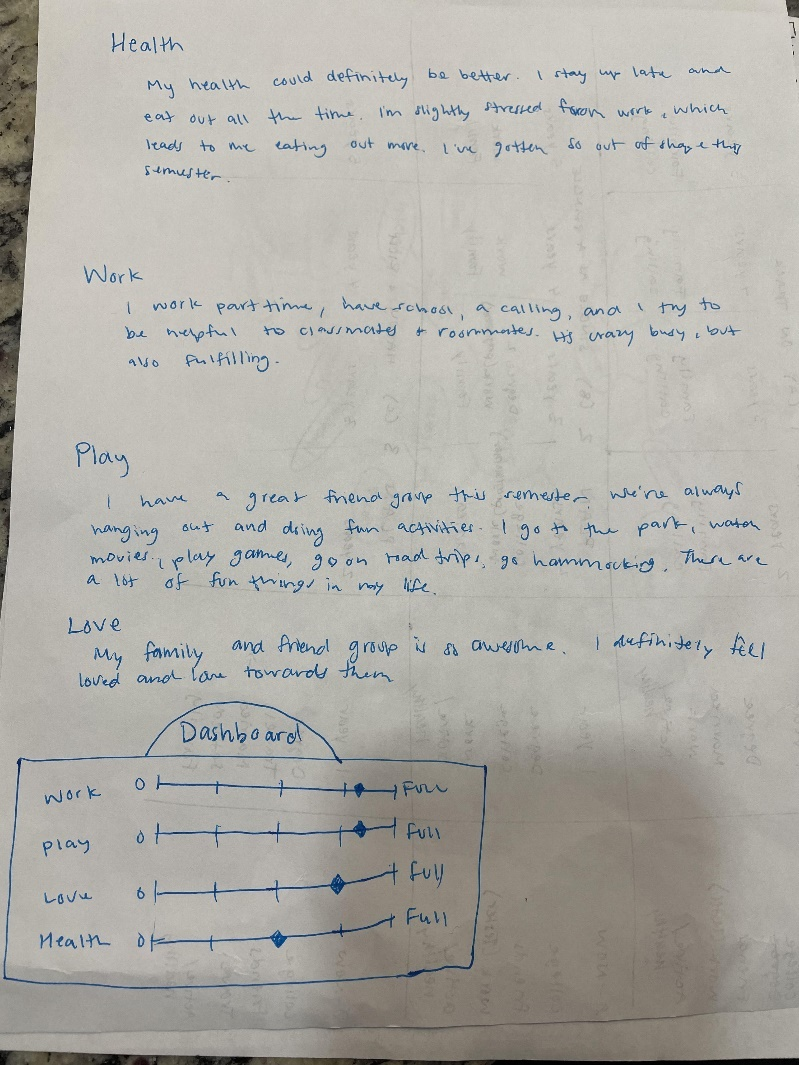 Health
My health could definitely be better. I stay up late and
eat out all the time. I'm slightly stressed from work, which
leads to me eating out more. I've gotten so out of shape this
semester.
Work
I work part time, have school, a calling, and I try to
be helpful to classmates + roommates. It's crazy busy, but
also fulfilling.
Play
I have a great friend group this semester. We're always
hanging out and doing fun activities. I go to the park, watch
movies, play games, go on road trips, go hammocking. There are
a lot of fun things in my life.
Love
My family and friend group is so awesome. I definitely feel
loved and love towards them
Dashboard
Work 0 Full
Play 0 Full
Love 0 Full
Health 0 Full